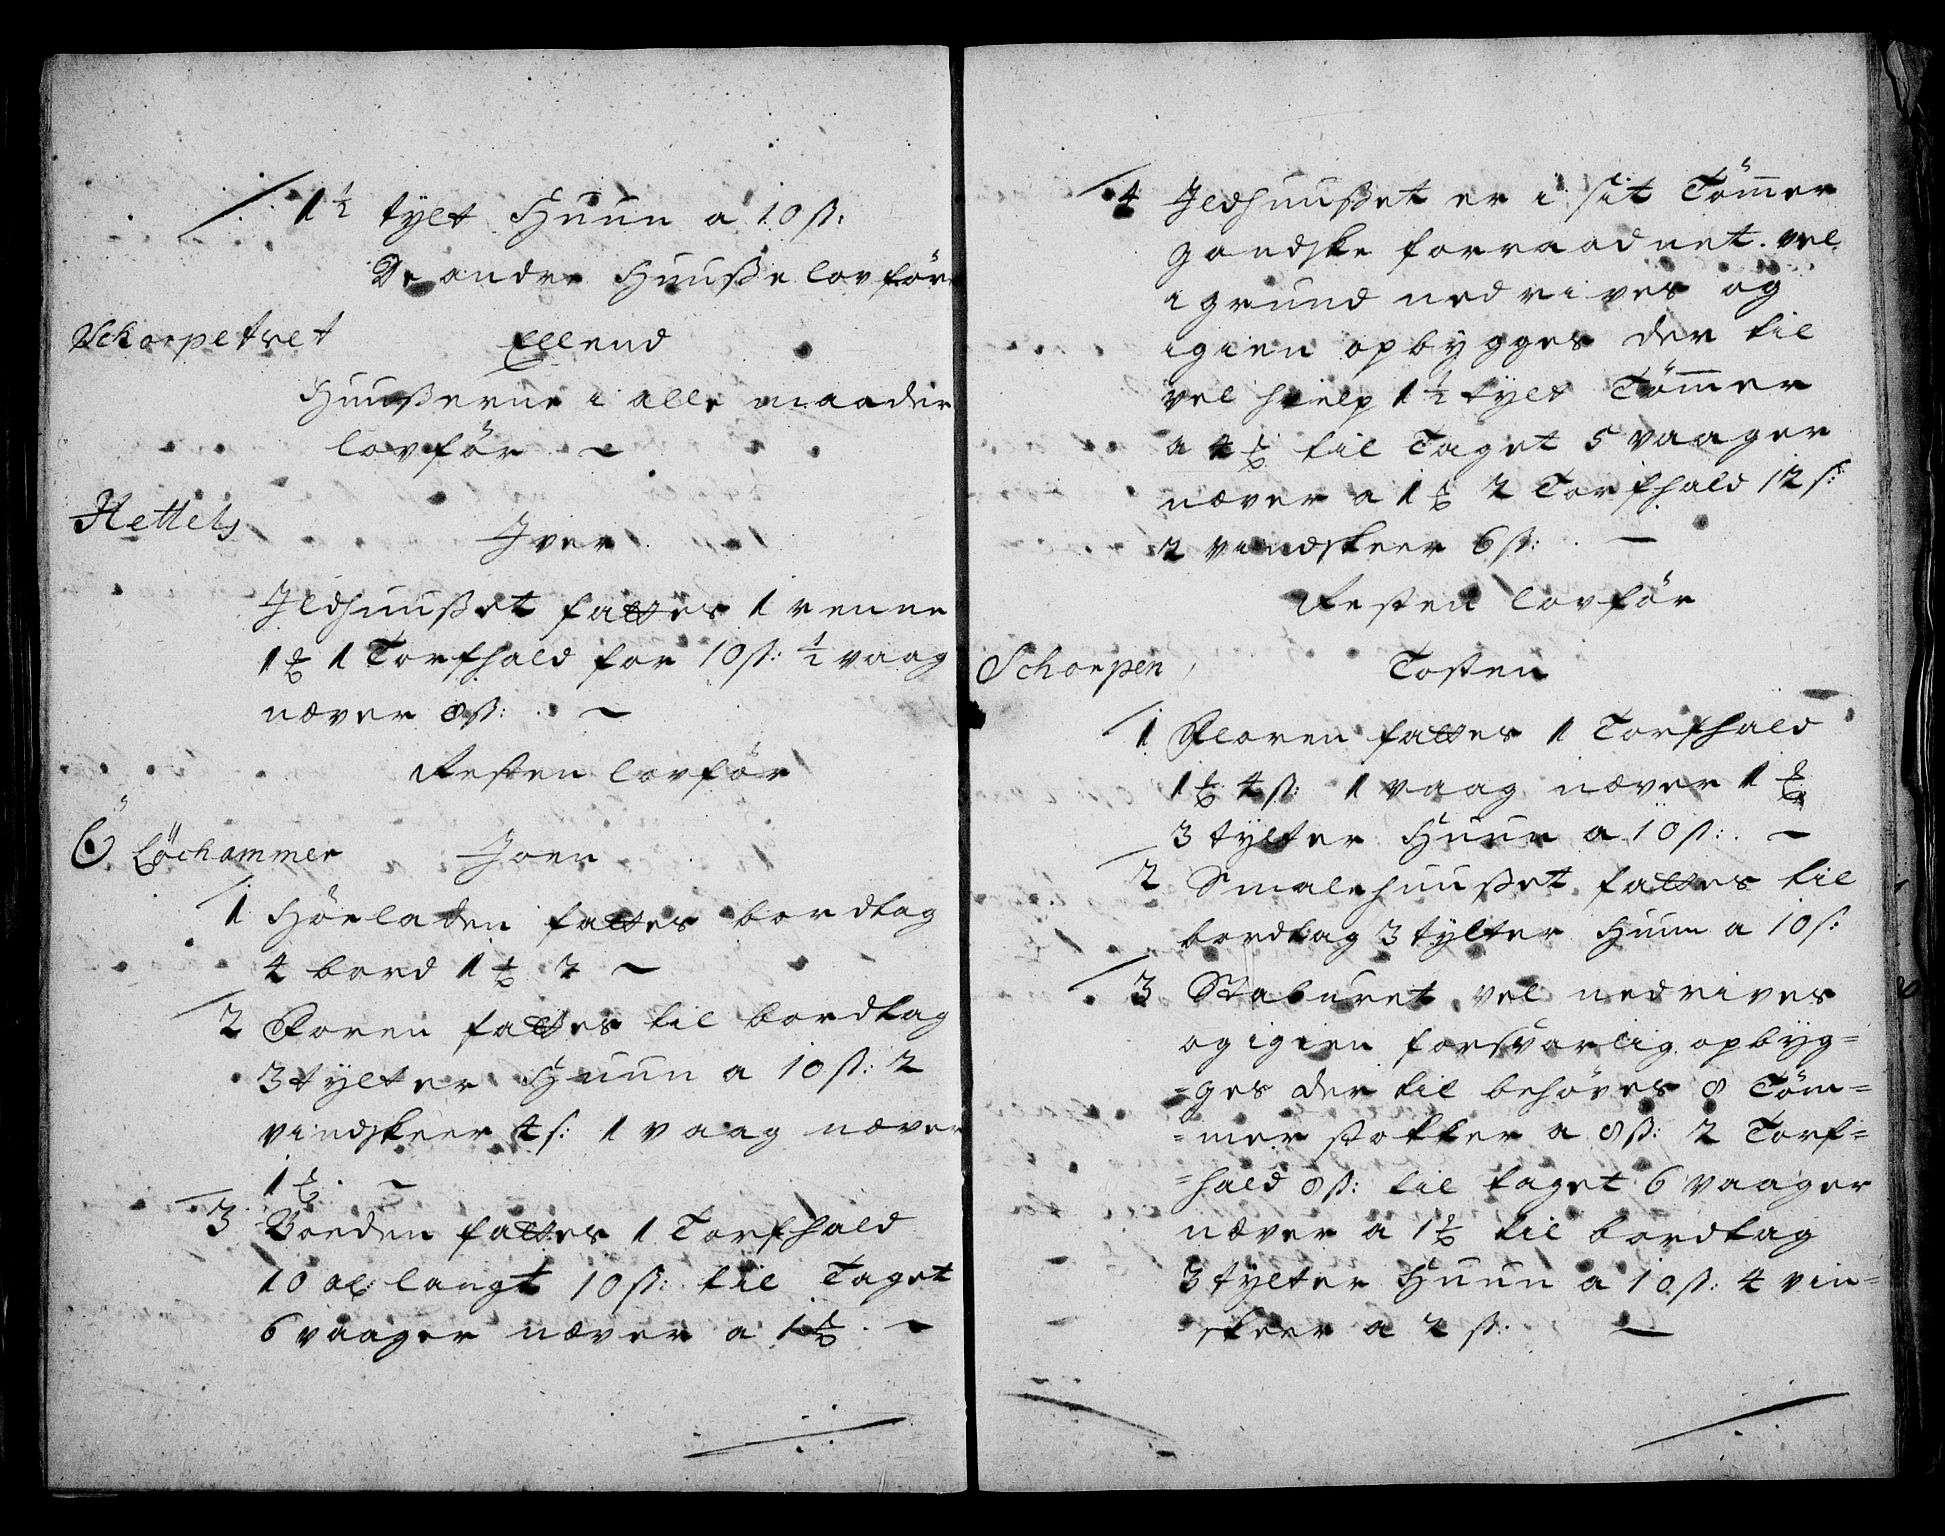 1½ tylt Huun a 10 ß:
De andre Huuße lovför
Schorpetret Ellend
Huußerne i alle maader
lovför ~
Hettels
Iver
Ildhuußet fattes 1 renne
1 ℔ 1 Torfhald for 10 ß: ½ vaag
næver 8 ß: ~
Resten lovför
Löchammer Joen
1 Höeladen fattes bordtag
4 bord 1 ℔ 2 ~
2 Floren fattes til bordtag
3 tylter Huun a 10 ß: 2
vindskeer 4 ß: 1 vaag næver
1 ℔. ~
3 Boeden fattes 1 Torfhald
10 al: langt 10 ß: til Taget
6 vaager næver a 1 ℔. ~
4 Ildhuußet er i sit Tömer
gandske forraadnet. vel
i grund nedrives og
igien opbygges der til
vel hielp 1½ tylt Tömer
a 4 ℔ til Taget 5 vaager
næver a 1 ℔ 2 Torfhald 12 ß:
2 vindskeer 6 ß: ~
Resten lovför
Schorpen, Tosten
1 Floren fattes 1 Torfhald
1 ℔ 4 ß: 1 vaag næver 1 ℔
3 tylter Huun a 10 ß: ~
2 Smalehuußet fattes til
bordtag 3 tylter Huun a 10 ß:
3 Staburet vel nedrives
og igien forsvarlig opbyg=
=ges der til behöves 8 Töm=
=mer stokker a 8 ß: 2 Torf=
=hald 8 ß: til taget 6 vaager
næver a 1 ℔ til bordtag
3 tylter Huun a 10 ß: 4 vin=
=skeer a 2 ß: ~